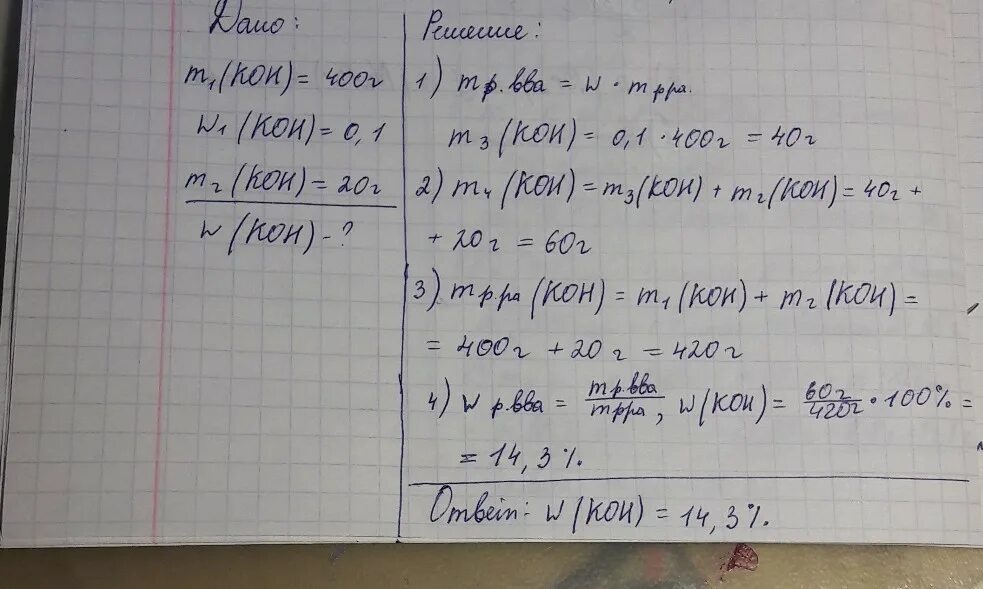 Дано:
m₁(KOH) = 400г
w₁(KOH) = 0,1
m₂(KOH) = 20г
w(KOH) - ?
Решение:
1) m р.вва = w · m рра.
m₃(KOH) = 0,1 · 400г = 40г
2) m₄(KOH) = m₃(KOH) + m₂(KOH) = 40г +
+ 20г = 60г
3) m р.ра (KOH) = m₁(KOH) + m₂(KOH) =
= 400г + 20г = 420г
4) w р.вва = m р.вва / m рра, w(KOH) = 60г / 420г · 100% =
= 14,3%.
Ответ: w(KOH) = 14,3%.